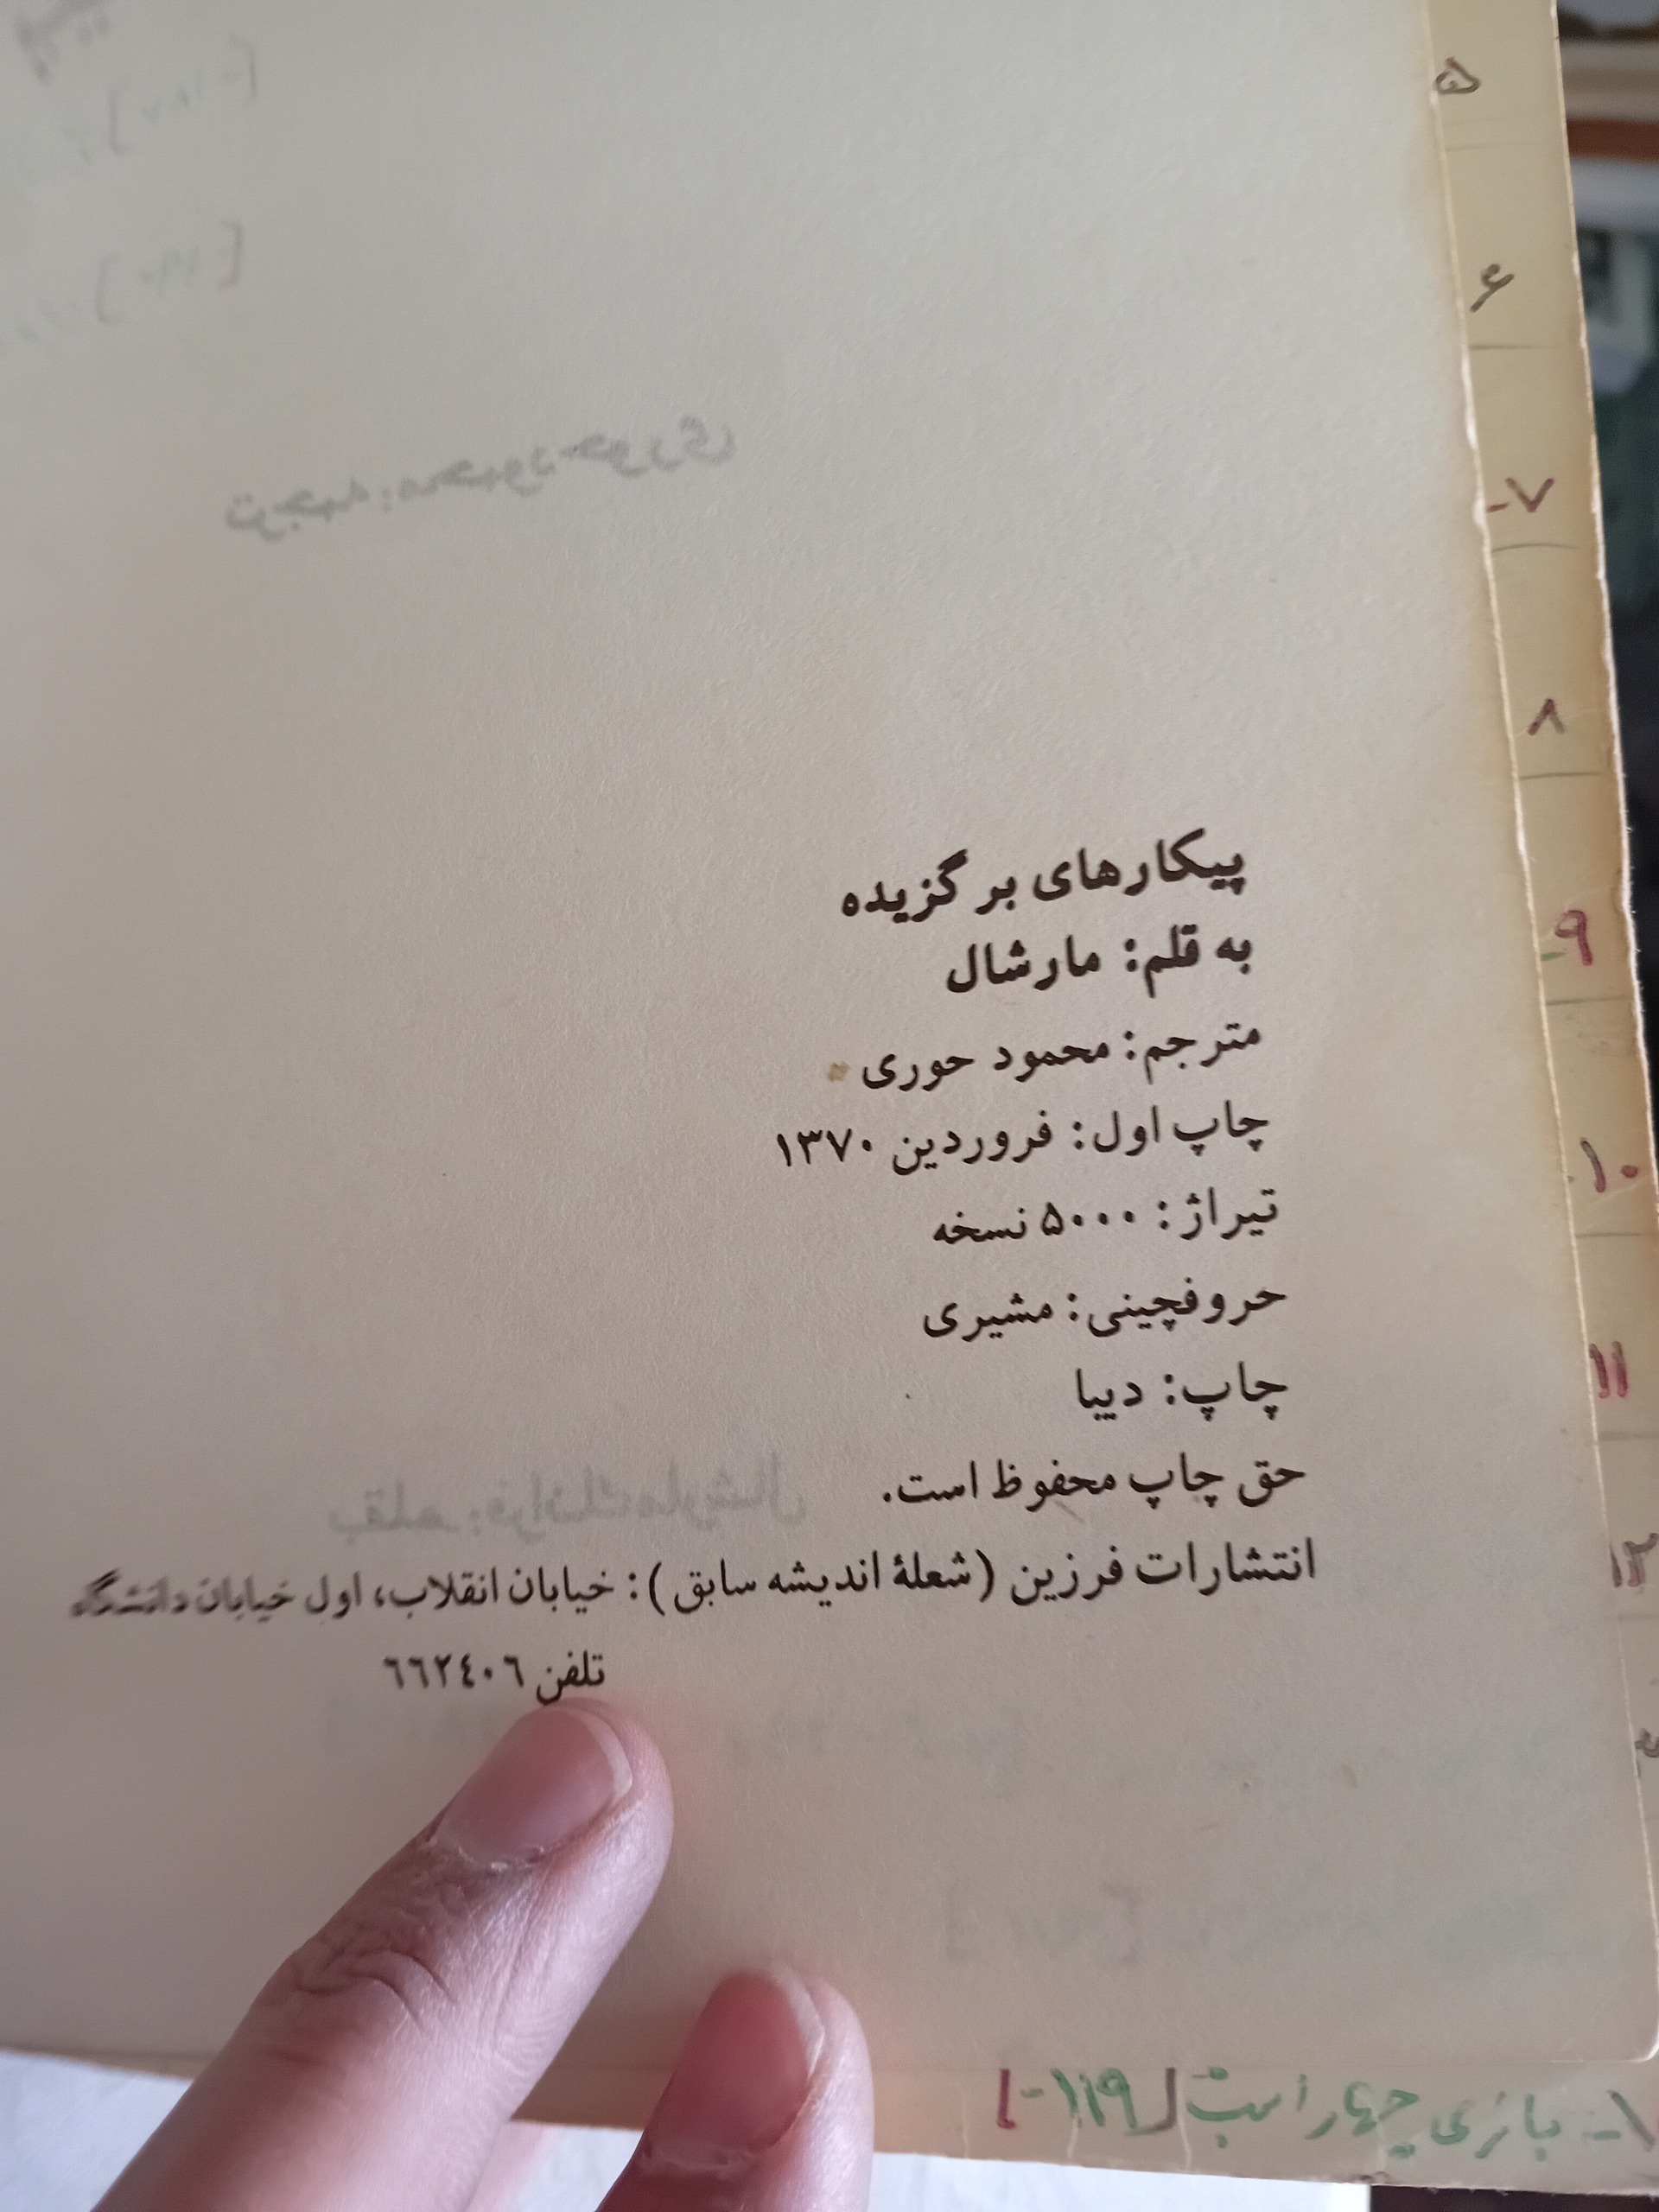 پیکارهای برگزیده
به قلم: مارشال
مترجم: محمود حوری
چاپ اول: فروردین ۱۳۷۰
تیراژ: ۵۰۰۰ نسخه
حروفچینی: مشیری
چاپ: دیبا
حق چاپ محفوظ است.
انتشارات فرزین (شعلهٔ اندیشه سابق): خیابان انقلاب، اول خیابان دانشگاه
تلفن ٦٦٢٤٠٦
ترجمه: محمود حوری
بقلم: فرانک مارشال
۵
۶
۷-
۸
۹-
۱۰
۱۱
۱۲
۱- بازی چهار اسب [۱۱۹-]